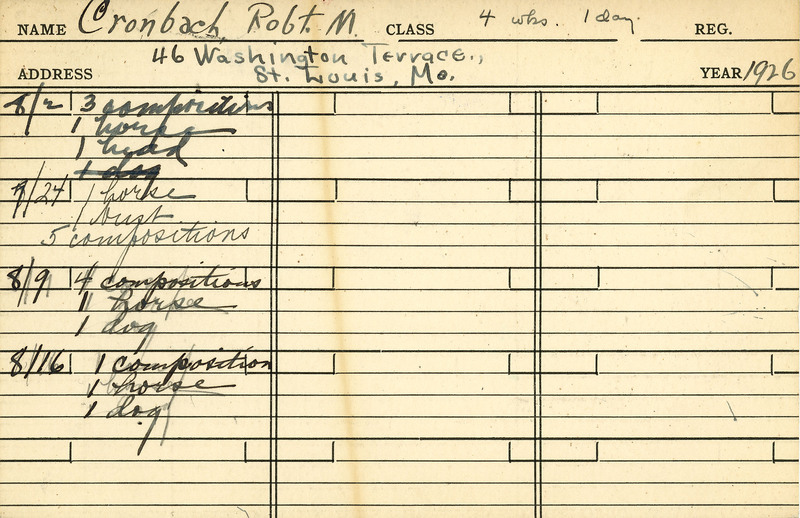 NAME Cronbach, Robt. M. CLASS 4 wks. 1 day. REG.
ADDRESS 46 Washington Terrace.,
St. Louis, Mo. YEAR 1926
8/2 3 compositions
1 horse
1 head
1 dog
8/24 1 horse
1 bust
5 compositions
8/9 4 compositions
1 horse
1 dog
8/16 1 composition
1 horse
1 dog